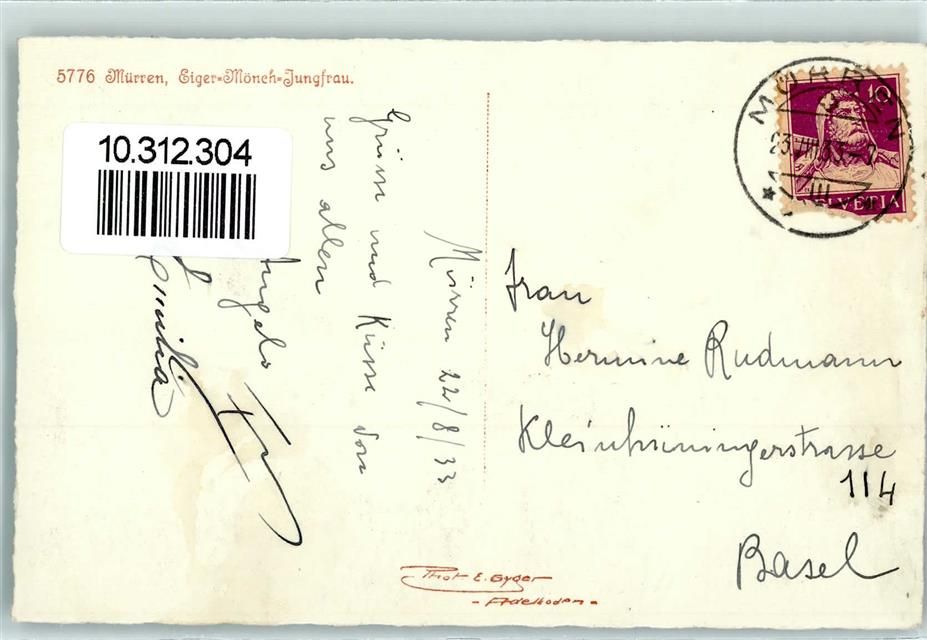 5776 Mürren, Eiger-Mönch-Jungfrau.
10.312.304
MÜRREN
10
HELVETIA
Mürren 22/8/33
Grüsse und Küsse von
uns allen
Angelo
Emilia
Frau
Hermine Rudmann
Kleinhüningerstrasse
114
Basel
Phot E. Gyger
- Adelboden -